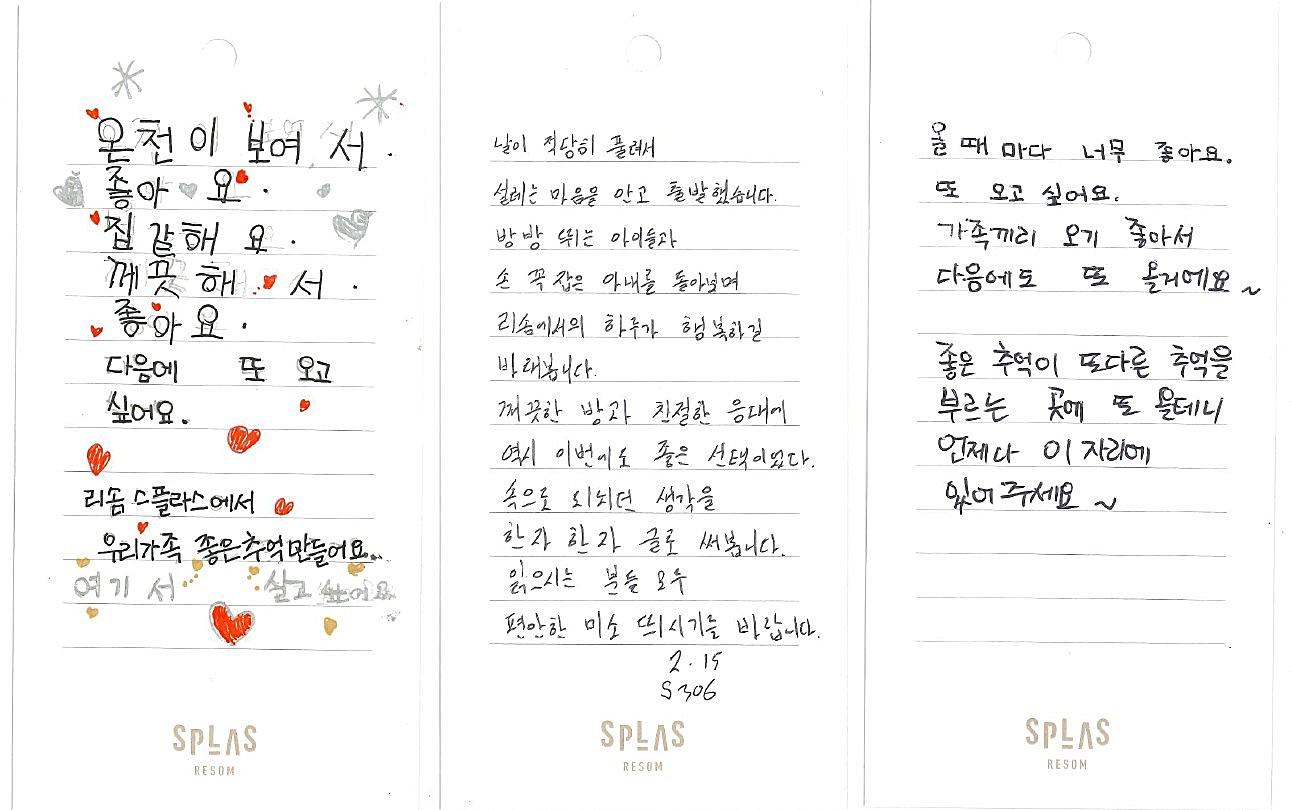 온천이 보여서.
좋아요.
집 같해요.
께끗해서.
좋아요.
다음에 또 오고
싶어요.
리솜 스플라스에서
우리가족 좋은추억만들어요...
여기서 살고 싶어요
SPLAS
RESOM
날이 적당히 풀려서
설레는 마음을 안고 출발했습니다.
방방 뛰는 아이들과
손 꼭 잡은 아내를 돌아보며
리솜에서의 하루가 행복하길
바래봅니다.
깨끗한 방과 친절한 응대에
역시 이번에도 좋은 선택이었다.
속으로 되뇌던 생각을
한자 한자 글로 써봅니다.
읽으시는 분들 모두
편안한 미소 띄시기를 바랍니다.
2.15
S306
SPLAS
RESOM
올 때 마다 너무 좋아요.
또 오고 싶어요.
가족끼리 오기 좋아서
다음에도 또 올거에요~
좋은 추억이 또다른 추억을
부르는 곳에 또 올테니
언제나 이 자리에
있어주세요~
SPLAS
RESOM